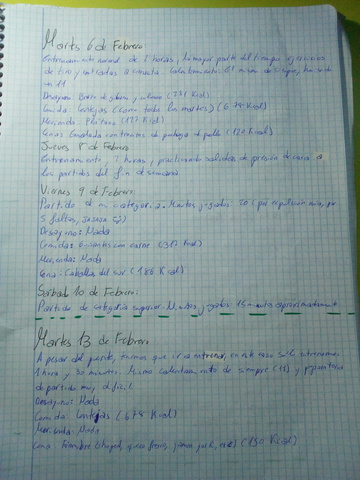 Martes 6 de Febrero
Entrenamiento normal de 2 horas, la mayor parte del tiempo ejercicios
de tiro y entradas a canasta. Calentamiento: El mismo de siempre, ha sido
un 11
Desayuno: (271 Kcal)
Comida: Lentejas (como todos los martes) (678 Kcal)
Merienda: Plátano (117 Kcal)
Cena: Ensalada con trozos de pechuga de pollo (120 Kcal)
Jueves 8 de Febrero
Entrenamiento, 2 horas y practicando salidas de presión de cara a
los partidos del fin de semana
Viernes 9 de Febrero:
Partido de mi categoría. Minutos jugados: 20 (por expulsión mía, por
5 faltas, jajaja
Desayuno: Nada
Comida: Guisantes con carne (317 Kcal)
Merienda: Nada
Cena: Caballa del sur (186 Kcal)
Sábado 10 de Febrero:
Partido de categoría superior. Minutos jugados: 15 minutos aproximadamente
Martes 13 de Febrero:
A pesar del puente, tuvimos que ir a entrenar, en este caso sólo entrenamos
1 hora y minutos. Mismo calentamiento de siempre (11) y preparatoria
de partido muy difícil
Desayuno: Nada
Comida: Lentejas (678 Kcal)
Merienda: Nada
Cena: Fiambre (chopped, queso fresco, jamón york, etc) (150 Kcal)